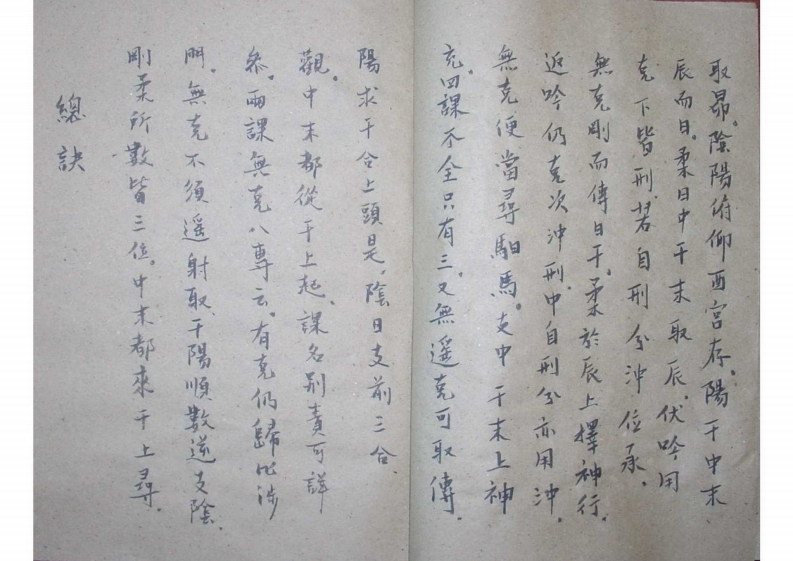 取昴。陰陽俯仰酉宮存。陽干中末
辰而日。柔日中干末取辰。伏吟用
克下皆刑。若自刑兮沖位承。
無克剛而傳日干。柔於辰上擇神行。
返吟仍克次沖刑。中自刑兮亦用沖。
無克便當尋馹馬。支中干末上神
充。四課不全只有三。又無遥克可取傳。
陽求干合上頭是。陰日支前三合
觀。中末都從干上起。課名別責可詳
參。兩課無克八專云。有克仍歸比涉
門。無克不須遥射取。干陽順數逆支陰。
剛柔所數皆三位。中末都來干上尋。
總訣